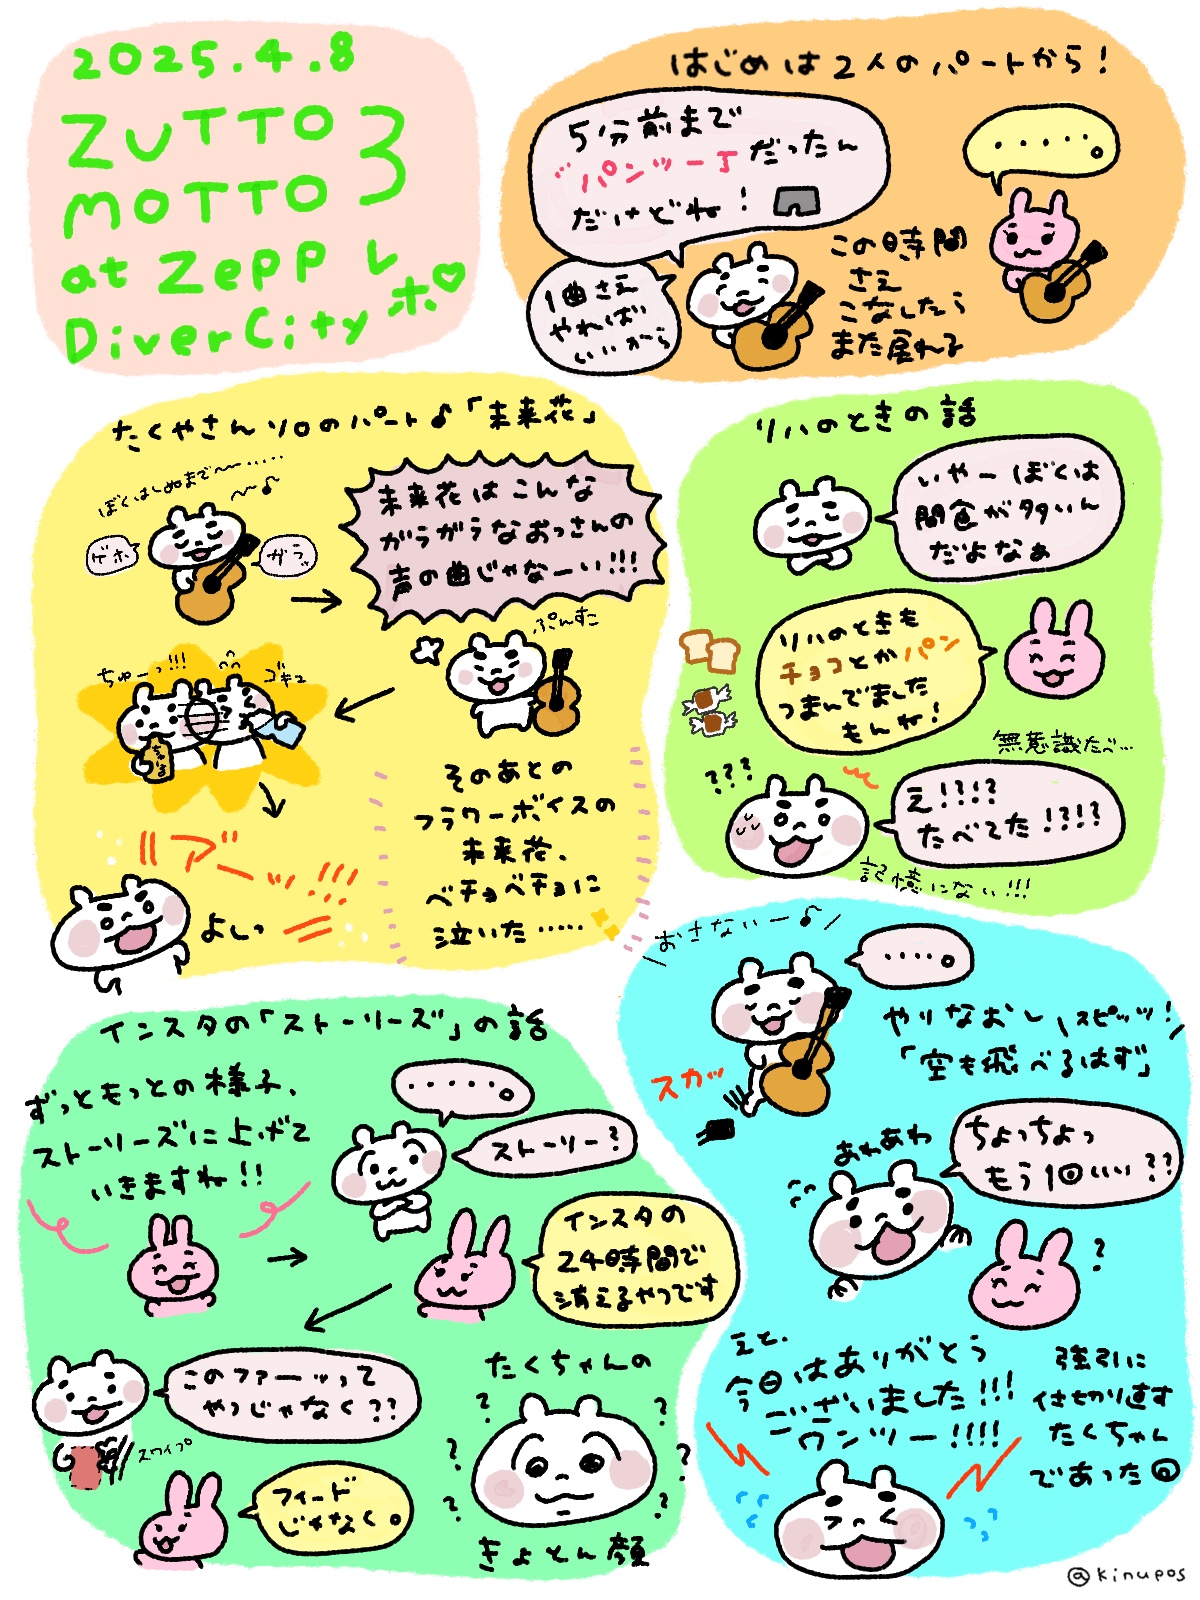 2025.4.8
ZUTTO
MOTTO 3
at Zepp
DiverCity
レポ♡
はじめは2人のパートから!
5分前まで
パンツ一丁だったん
だけどね!
1曲さえ
やれば
いいから
この時間
さえ
こなしたら
また戻れる
・・・・・。
たくやさんソロのパート♪「未来花」
ぼくはしぬまで〜〜……
〜♪
ゲホ
ガラッ
未来花はこんな
ガラガラなおっさんの
声の曲じゃなーい!!!
ぷんすこ
ちゅーっ!!!
ゴキュ
そのあとの
フラワーボイスの
未来花、
ベチョベチョに
泣いた……
アーッ!!!
よしっ
リハのときの話
いやーぼくは
間食が多いん
だよなぁ
リハのときも
チョコとかパン
つまんでました
もんね!
無意識だべ…
???
え!?!?
たべてた!?!?
記憶にない!!!
インスタの「ストーリーズ」の話
ずっともっとの様子、
ストーリーズに上げて
いきますね!!
・・・・・・。
ストーリー?
インスタの
24時間で
消えるやつです
このファーッって
やつじゃなく??
スワイプ
フィード
じゃなく。
たくちゃんの
きょとん顔
おさないー♪
・・・・。
スカッ
やりなおしスピッツ!
「空も飛べるはず」
あわあわ
ちょっちょっ
もう1回いい??
?
えと、
今日はありがとう
ございました!!!
ワンツー!!!!
強引に
仕切り直す
たくちゃん
であった
@kinupos